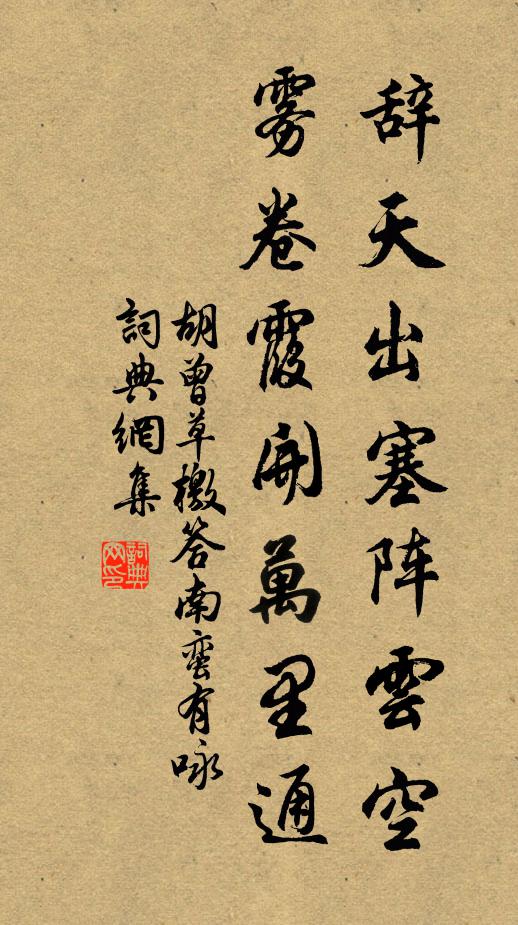 辞天出塞阵雲空
雾卷霞開萬里通
胡曾草檄答南蛮有咏
詞典網集
詞典網印